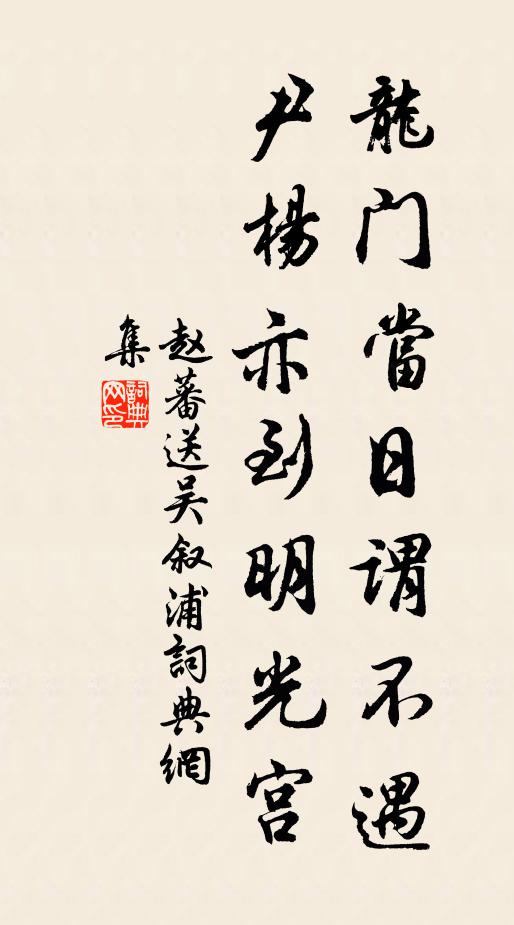 龍门當日谓不遇
尹楊亦到明光宫
赵蕃送吴叙浦詞典網
集
詞典网印